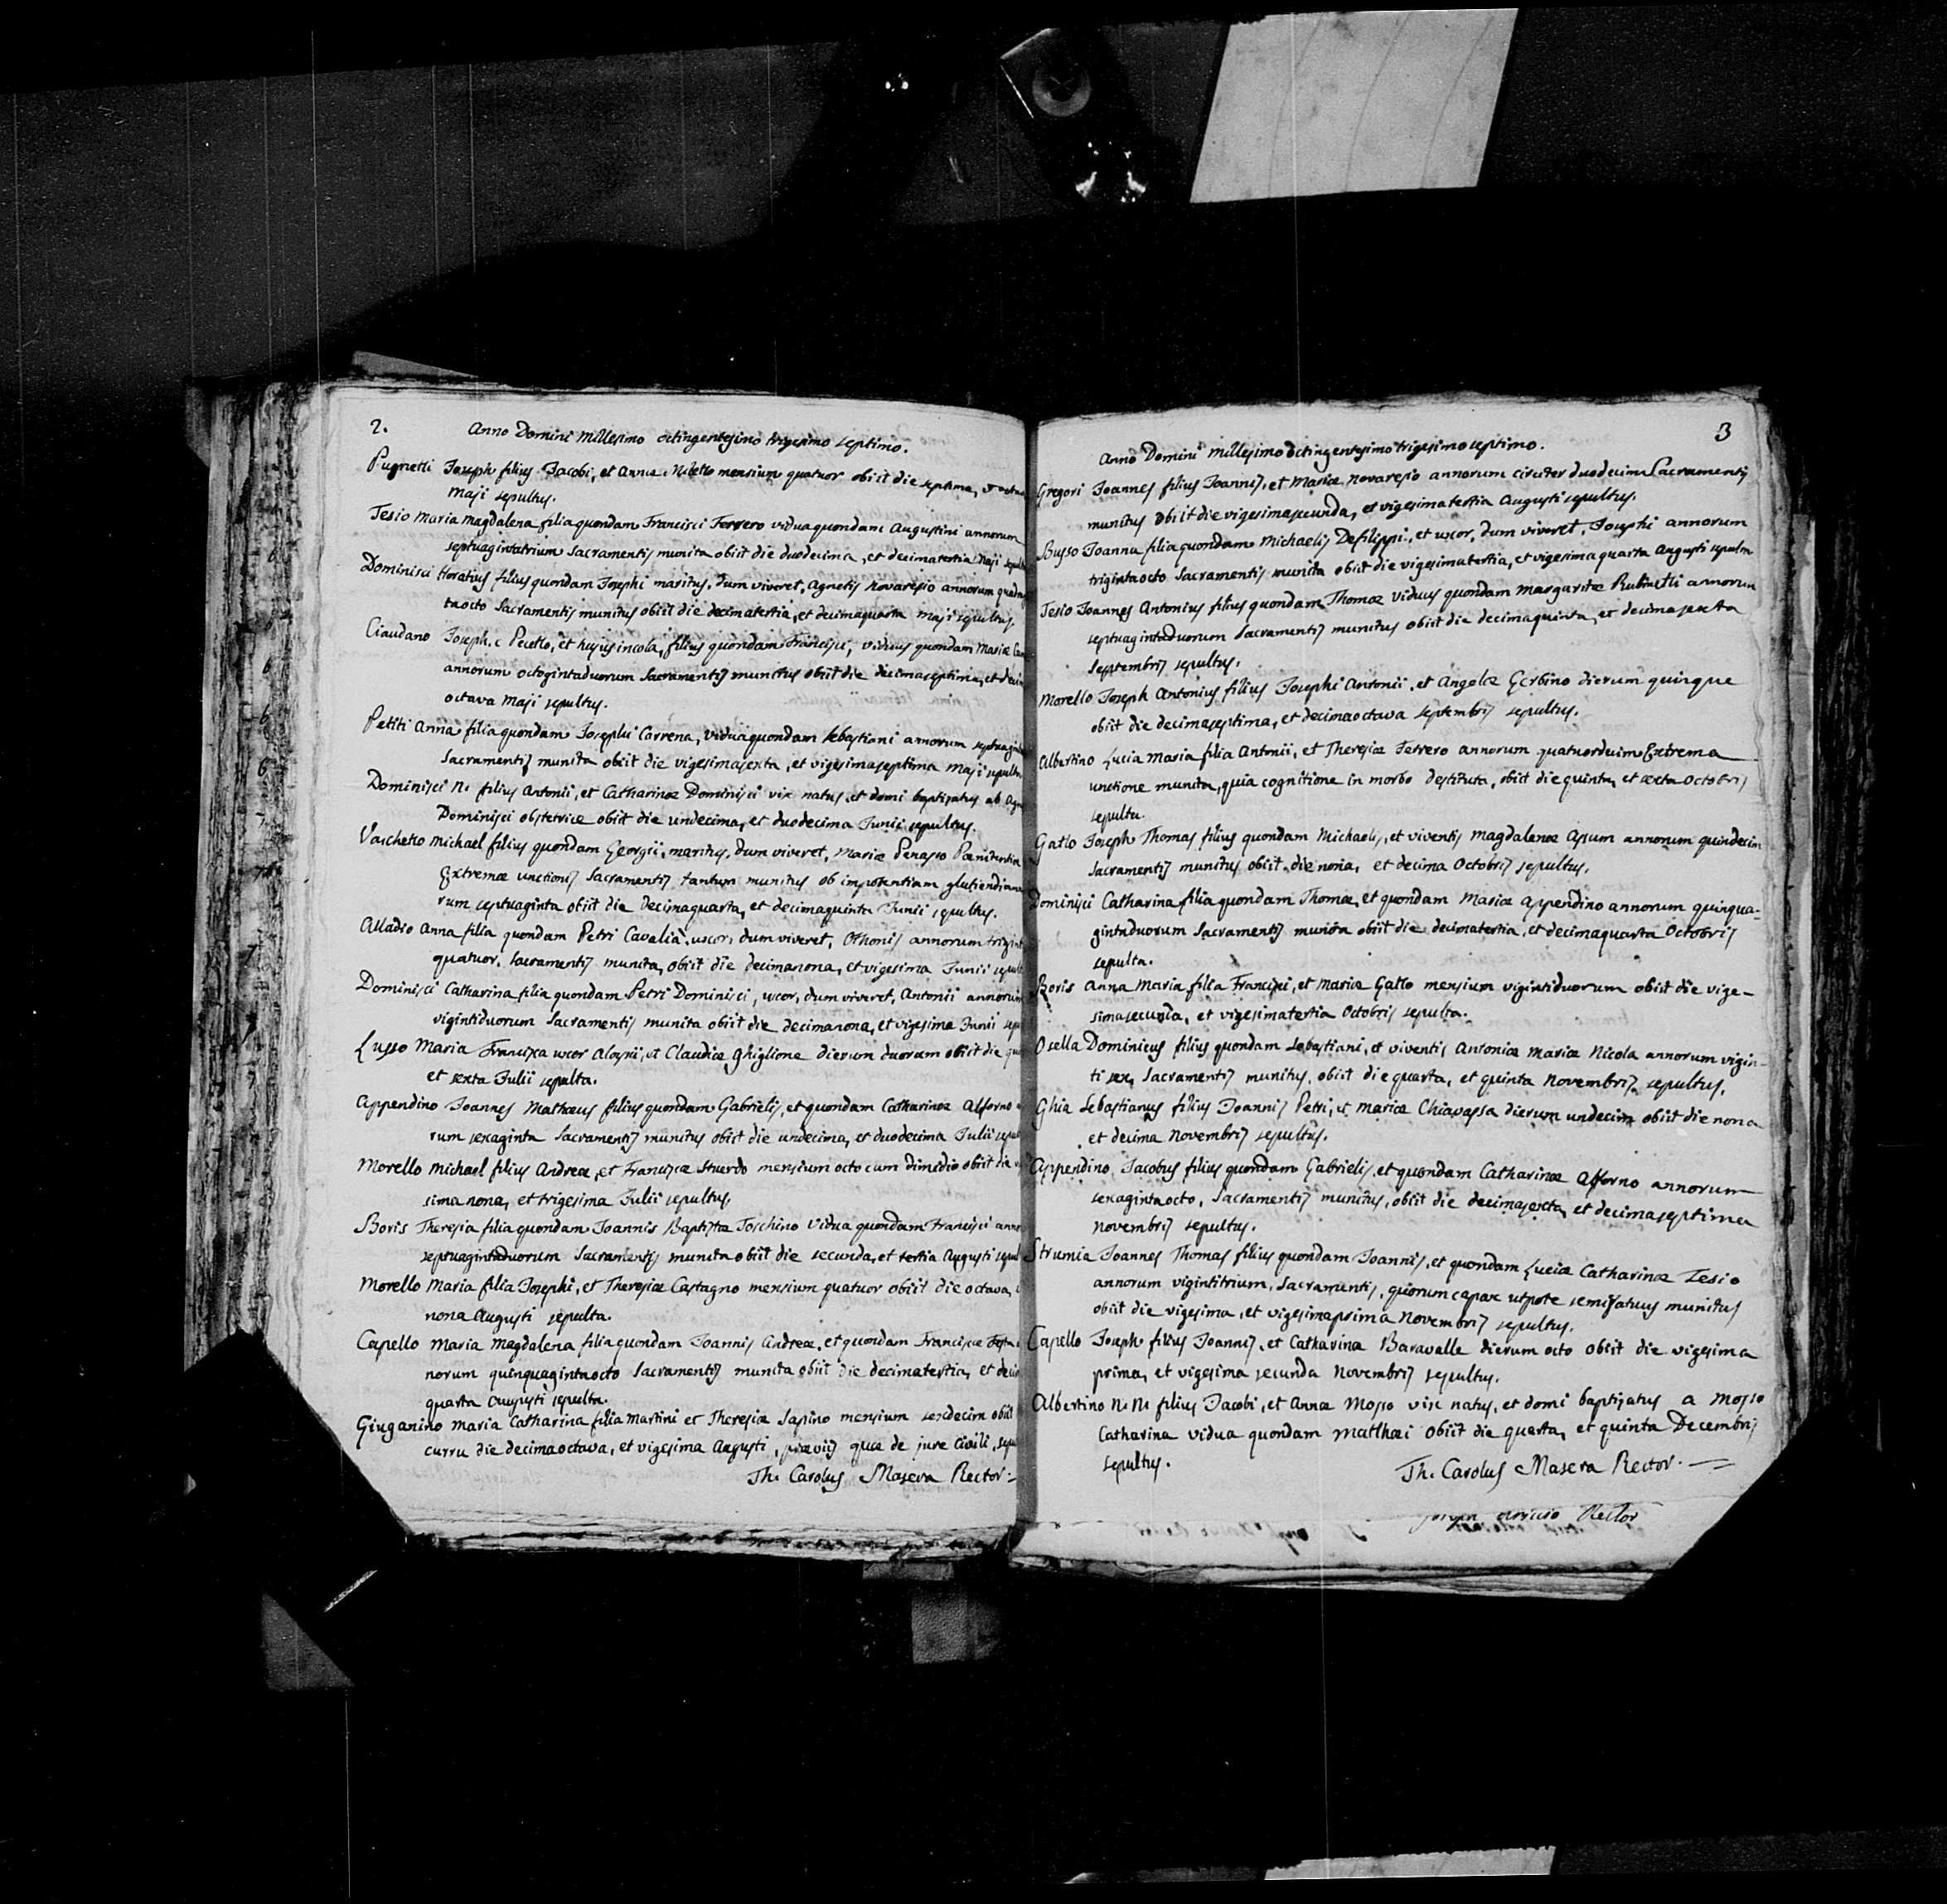 2.
Anno Domini Millesimo octingentesimo trigesimo septimo.
Pugnetti Joseph filius Jacobi, et Annæ mensium quatuor obiit die septima, et
Maji sepultus.
Tesio Maria Magdalena filia quondam Francisci Ferrero vidua quondam Augustini annorum
septuagintatrium Sacramentis munita obiit die duodecima, et decimatertia Maji
Dominisci Horatius filius quondam Josephi maritus, dum viveret, Agnetis Novaresio annorum
taocto Sacramentis munitus obiit die decimatertia, et decimaquarta Maji sepultus.
Ciaudano Joseph, e Pecetto, et hujus incola, filius quondam Francisci, viduus quondam Mariæ
annorum octogintaduorum Sacramentis munitus obiit die decimaseptima, et
octava Maji sepultus.
Petiti Anna filia quondam Josephi Carrena, vidua quondam Sebastiani annorum
Sacramentis munita obiit die vigesimasexta, et vigesimaseptima Maji
Dominisci N. filius Antonii, et Catharinæ Dominisci vix natus, et domi baptizatus ab
Dominisci obstetrice obiit die undecima, et duodecima Junii sepultus.
Vaschetto Michael filius quondam Georgii, maritus, dum viveret, Mariæ Penasso
Extremæ unctionis Sacramentis tantum munitus ob impotentiam
rum septuaginta obiit die decimaquarta, et decimaquinta Junii sepultus.
Alladio Anna filia quondam Petri Cavalià, uxor, dum viveret, Othonis annorum
quatuor, Sacramentis munita, obiit die decimanona, et vigesima Junii
Dominisci Catharina filia quondam Petri Dominisci, uxor, dum viveret, Antonii annorum
vigintiduorum Sacramentis munita obiit die decimanona, et vigesima Junii
Lusso Maria Francisca uxor Aloysii, et Claudiæ Ghiglione dierum duorum obiit die
et sexta Julii sepulta.
Appendino Joannes Mathæus filius quondam Gabrielis, et quondam Catharinæ Alforno
rum sexaginta Sacramentis munitus obiit die undecima, et duodecima Julii
Morello Michael filius Andreæ, et Franciscæ Stuerdo mensium octo cum dimidio obiit die
sima nona, et trigesima Julii sepultus.
Boris Theresia filia quondam Joannis Baptistæ Toschino vidua quondam Francisci
septuagintaduorum Sacramentis munita obiit die secunda, et tertia Augusti
Morello Maria filia Josephi, et Theresiæ Castagno mensium quatuor obiit die octava,
nona Augusti sepulta.
Capello Maria Magdalena filia quondam Joannis Andreæ, et quondam Franciscæ
norum quinquagintaocto Sacramentis munita obiit die decimatertia, et
quarta Augusti sepulta.
Giuganino Maria Catharina filia Martini et Theresiæ Sapino mensium sexdecim obiit
curru die decimaoctava, et vigesima Augusti, præviis quæ de jure Civili,
Th. Carolus Masera Rector
3
Anno Domini Millesimo octingentesimo trigesimo septimo.
Gregori Joannes filius Joannis, et Mariæ Novaresio annorum circiter duodecim Sacramentis
munitus obiit die vigesimasecunda, et vigesimatertia Augusti sepultus.
Busso Joanna filia quondam Michaelis Defilippi, et uxor, dum viveret, Josephi annorum
trigintaocto Sacramentis munita obiit die vigesimatertia, et vigesima quarta Augusti sepulta
Tesio Joannes Antonius filius quondam Thomæ viduus quondam Margaritæ Rubinetti annorum
septuagintaduorum Sacramentis munitus obiit die decimaquinta, et decimasexta
Septembris sepultus.
Morello Joseph Antonius filius Josephi Antonii, et Angelæ Gerbino dierum quinque
obiit die decimaseptima, et decimaoctava Septembris sepultus.
Albertino Lucia Maria filia Antonii, et Theresiæ Ferrero annorum quatuordecim Extrema
unctione munita, quia cognitione in morbo destituta, obiit die quinta, et sexta Octobris
sepulta.
Gatto Joseph Thomas filius quondam Michaelis, et viventis Magdalenæ Asum annorum quindecim
Sacramentis munitus obiit die nona, et decima Octobris sepultus.
Dominisci Catharina filia quondam Thomæ, et quondam Mariæ Appendino annorum quinqua-
gintaduorum Sacramentis munita obiit die decimatertia, et decimaquarta Octobris
sepulta.
Boris Anna Maria filia Francisci, et Mariæ Gatto mensium vigintiduorum obiit die vige-
simasecunda, et vigesimatertia Octobris sepulta.
Osella Dominicus filius quondam Sebastiani, et viventis Antoniæ Mariæ Nicola annorum vigin-
ti sex, Sacramentis munitus, obiit die quarta, et quinta Novembris sepultus.
Ghia Sebastianus filius Joannis Petri, et Mariæ Chiavassa dierum undecim obiit die nona
et decima Novembris sepultus.
Appendino, Jacobus filius quondam Gabrielis, et quondam Catharinæ Alforno annorum
sexagintaocto, Sacramentis munitus, obiit die decimasexta, et decimaseptima
Novembris sepultus.
Strumia Joannes Thomas filius quondam Joannis, et quondam Luciæ Catharinæ Tesio
annorum vigintitrium, Sacramentis, quorum capax utpote semifatuus munitus
obiit die vigesima, et vigesimaprima Novembris sepultus.
Capello Joseph filius Joannis, et Catharina Baravalle dierum octo obiit die vigesima
prima, et vigesima secunda Novembris sepultus.
Albertino N. N. filius Jacobi, et Annæ Mosso vix natus, et domi baptizatus a Mosso
Catharina vidua quondam Matthæi obiit die quarta, et quinta Decembris
sepultus.
Th. Carolus Masera Rector.
Rector